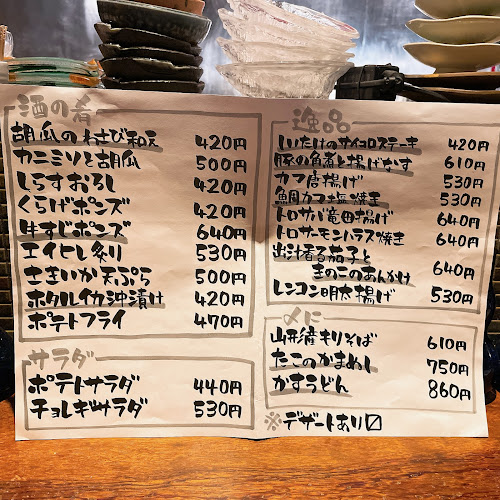 酒の肴
胡瓜のわさび和え 420円
カニミソと胡瓜 500円
しらすおろし 420円
くらげポンズ 420円
牛すじポンズ 640円
エイヒレ炙り 530円
さきいか天ぷら 500円
ホタルイカ沖漬け 420円
ポテトフライ 470円
サラダ
ポテトサラダ 440円
チョレギサラダ 530円
逸品
しいたけのサイコロステーキ 420円
豚の角煮と揚げなす 610円
カマ唐揚げ 530円
鯛カマ塩焼き 530円
トロサバ竜田揚げ 640円
トロサーモンハラス焼き 640円
出汁香る茄子と
きのこのあんかけ 640円
レンコン明太揚げ 530円
〆に
山形産キリそば 610円
たこのかまめし 750円
かすうどん 860円
※デザートあり〼